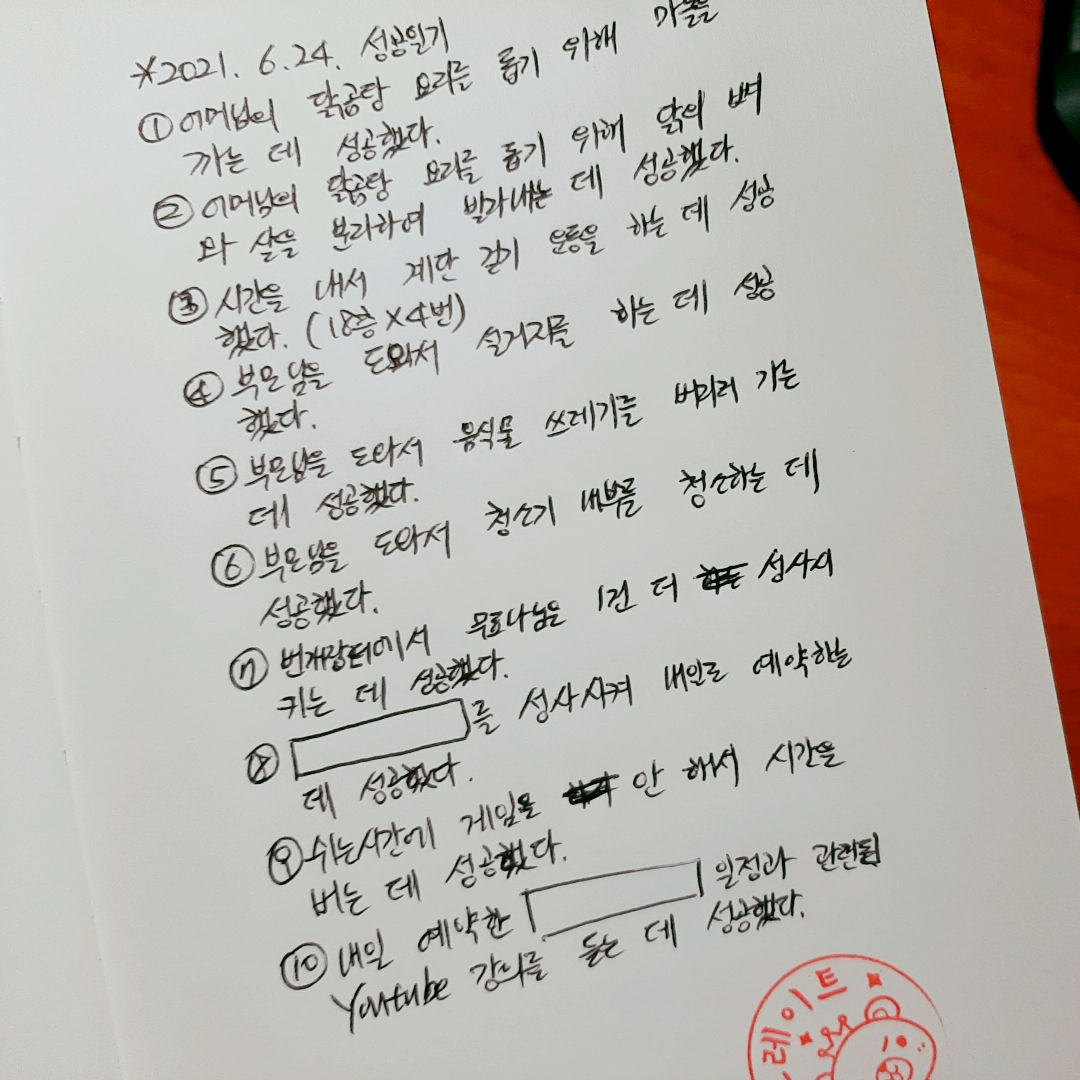 *2021. 6.24. 성공일기
① 어머님의 닭곰탕 요리를 돕기 위해 마늘을
까는 데 성공했다.
② 어머님의 닭곰탕 요리를 돕기 위해 닭의 뼈
와 살을 분리하여 발라내는 데 성공했다.
③ 시간을 내서 계단 걷기 운동을 하는 데 성공
했다. (18층×4번)
④ 부모님을 도와서 설거지를 하는 데 성공
했다.
⑤ 부모님을 도와서 음식물 쓰레기를 버리러 가는
데 성공했다.
⑥ 부모님을 도와서 청소기 내부를 청소하는 데
성공했다.
⑦ 번개장터에서 무료나눔을 1건 더 성사시
키는 데 성공했다.
⑧ 를 성사시켜 내일로 예약하는
데 성공했다.
⑨ 쉬는시간에 게임을 안 해서 시간을
버는 데 성공했다.
⑩ 내일 예약한 일정과 관련된
Youtube 강의를 듣는 데 성공했다.
레이트